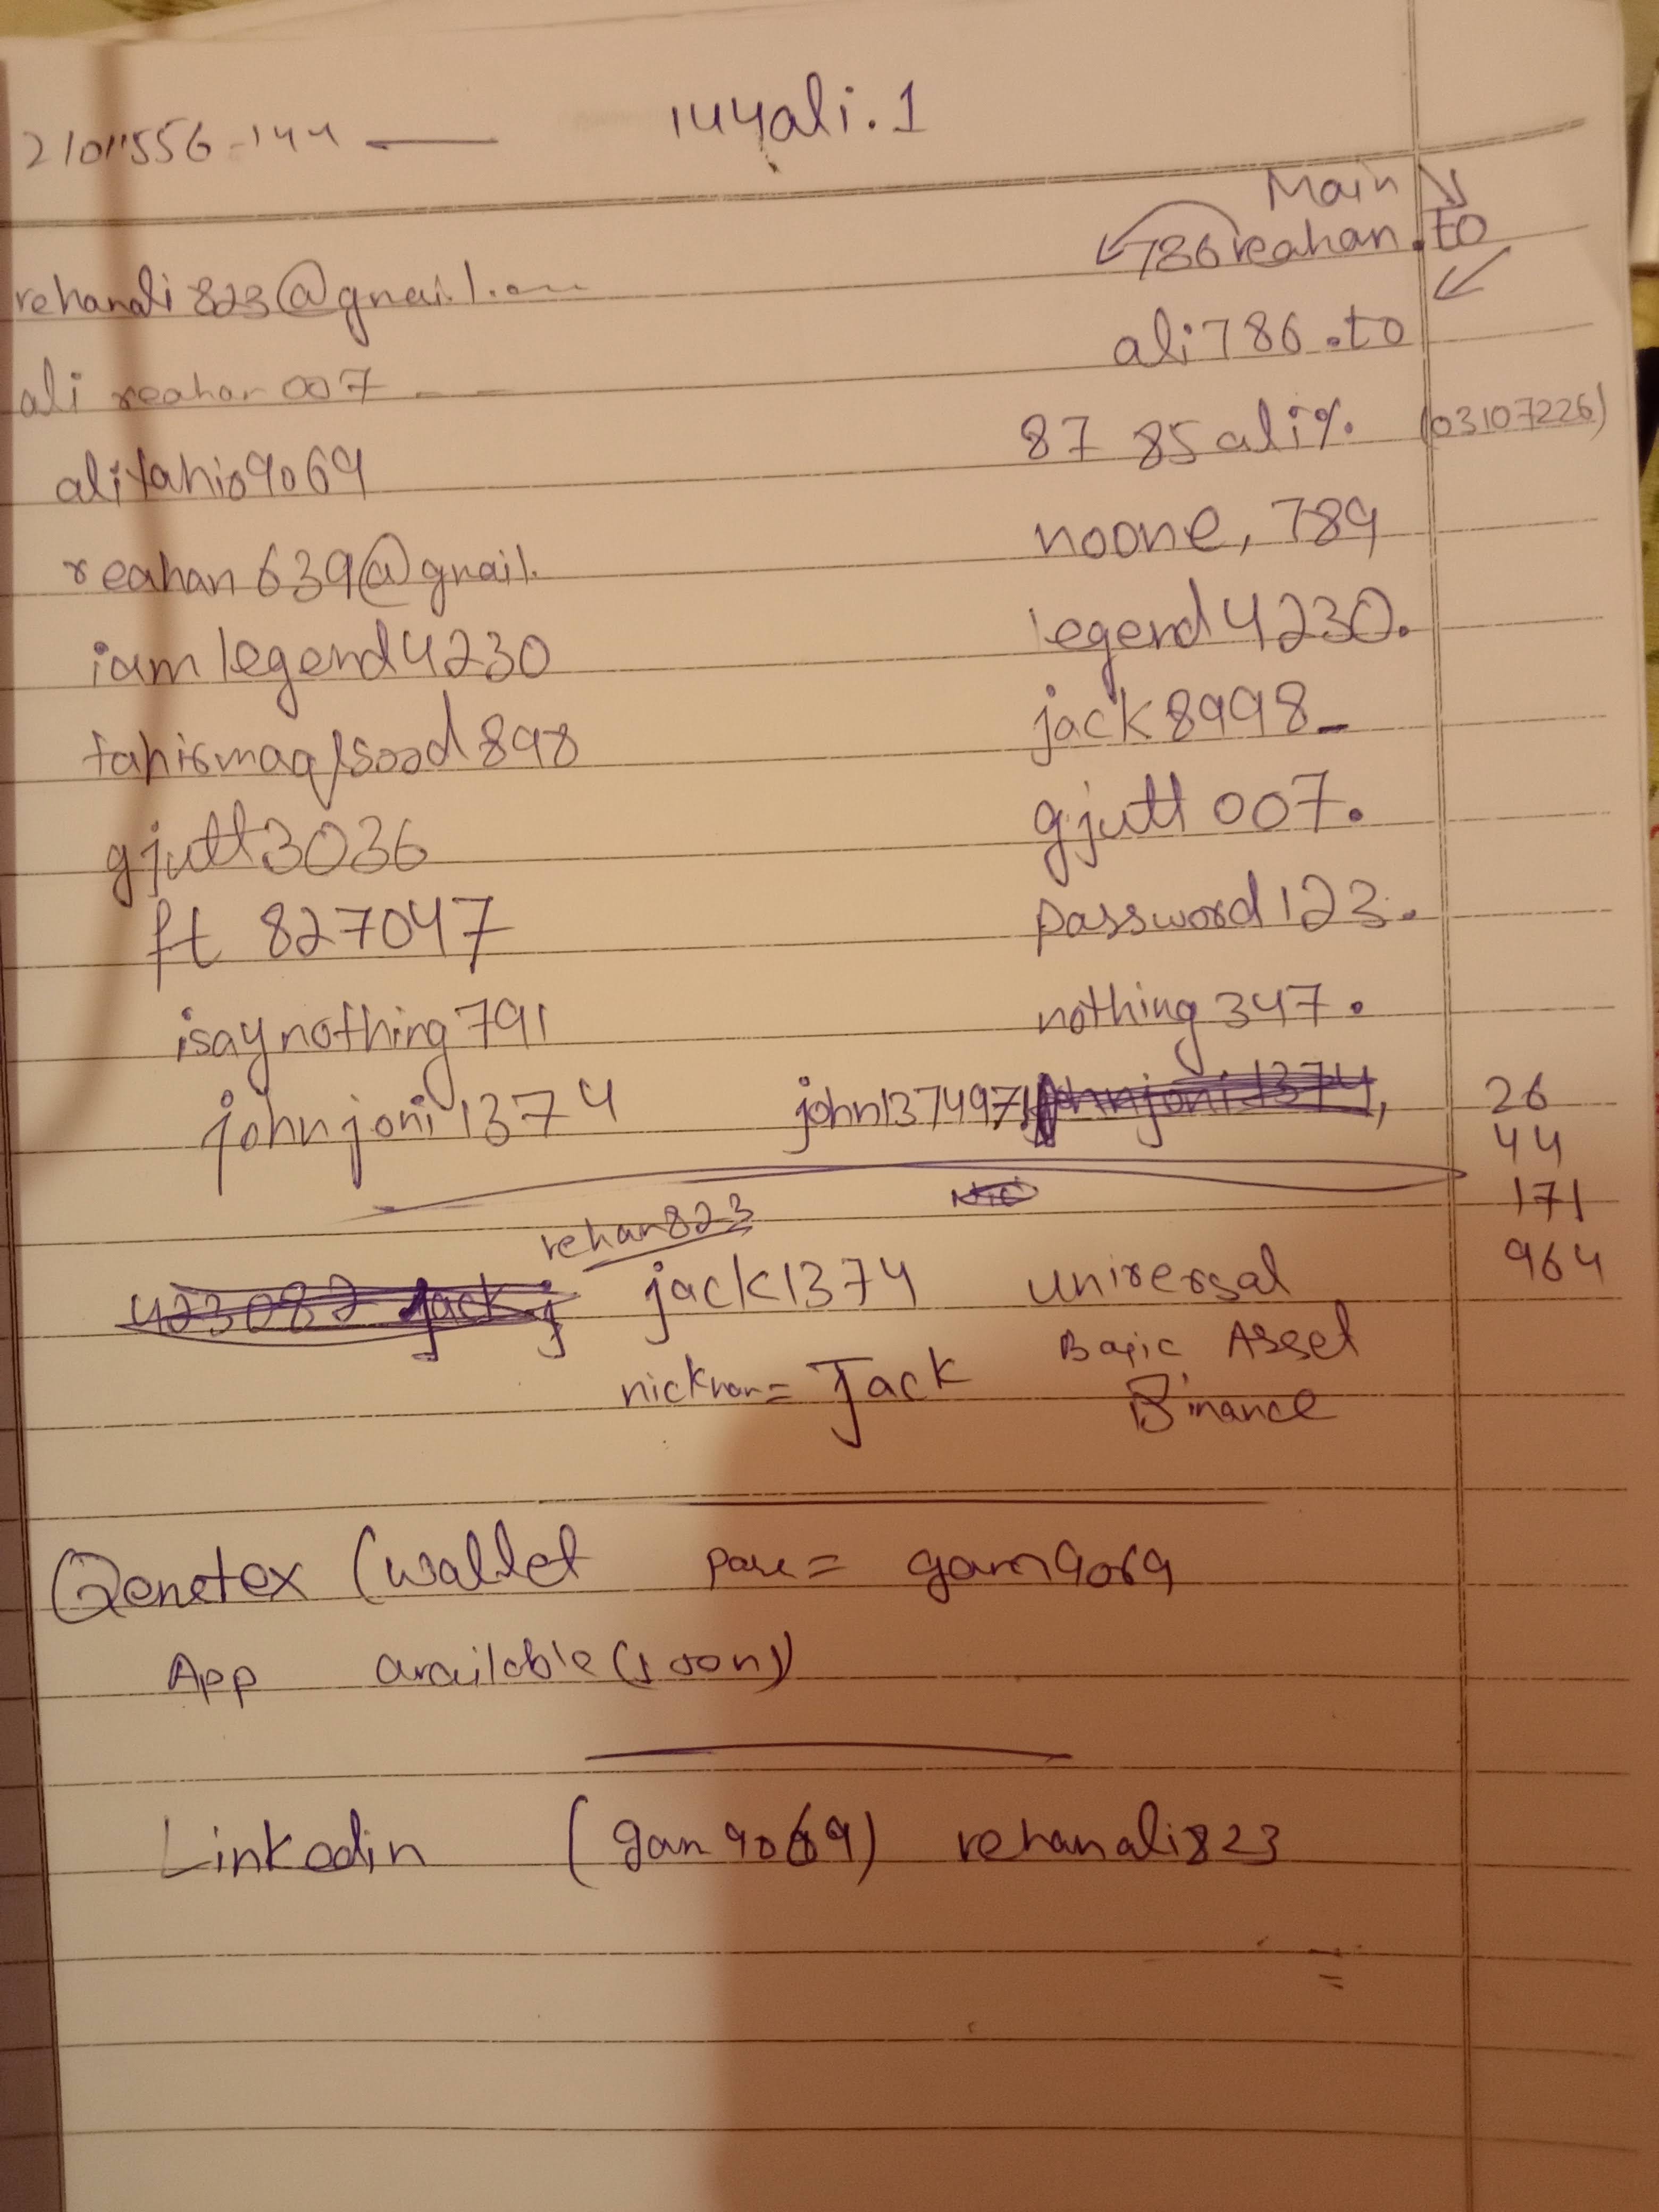 2101556-144 — 144ali.1
Main
786reahan.to
rehanali823@gmail.com
ali786.to
ali reahan007
87 85ali%. (03107226)
alitahir9069
noone, 789
reahan639@gmail.
legend4230.
iamlegend4230
jack8998_
tahirmaqsood898
gjutt007.
gjutt3036
password123.
ft 827047
nothing347.
isaynothing791
johnjoni1374 john137497 26
44
171
rehan823
964
jack1374 universal
Basic Asset
nicknam= Jack
Binance
(wallet pass= gam9069
App available (soon)
Linkedin (gam9069) rehanali823